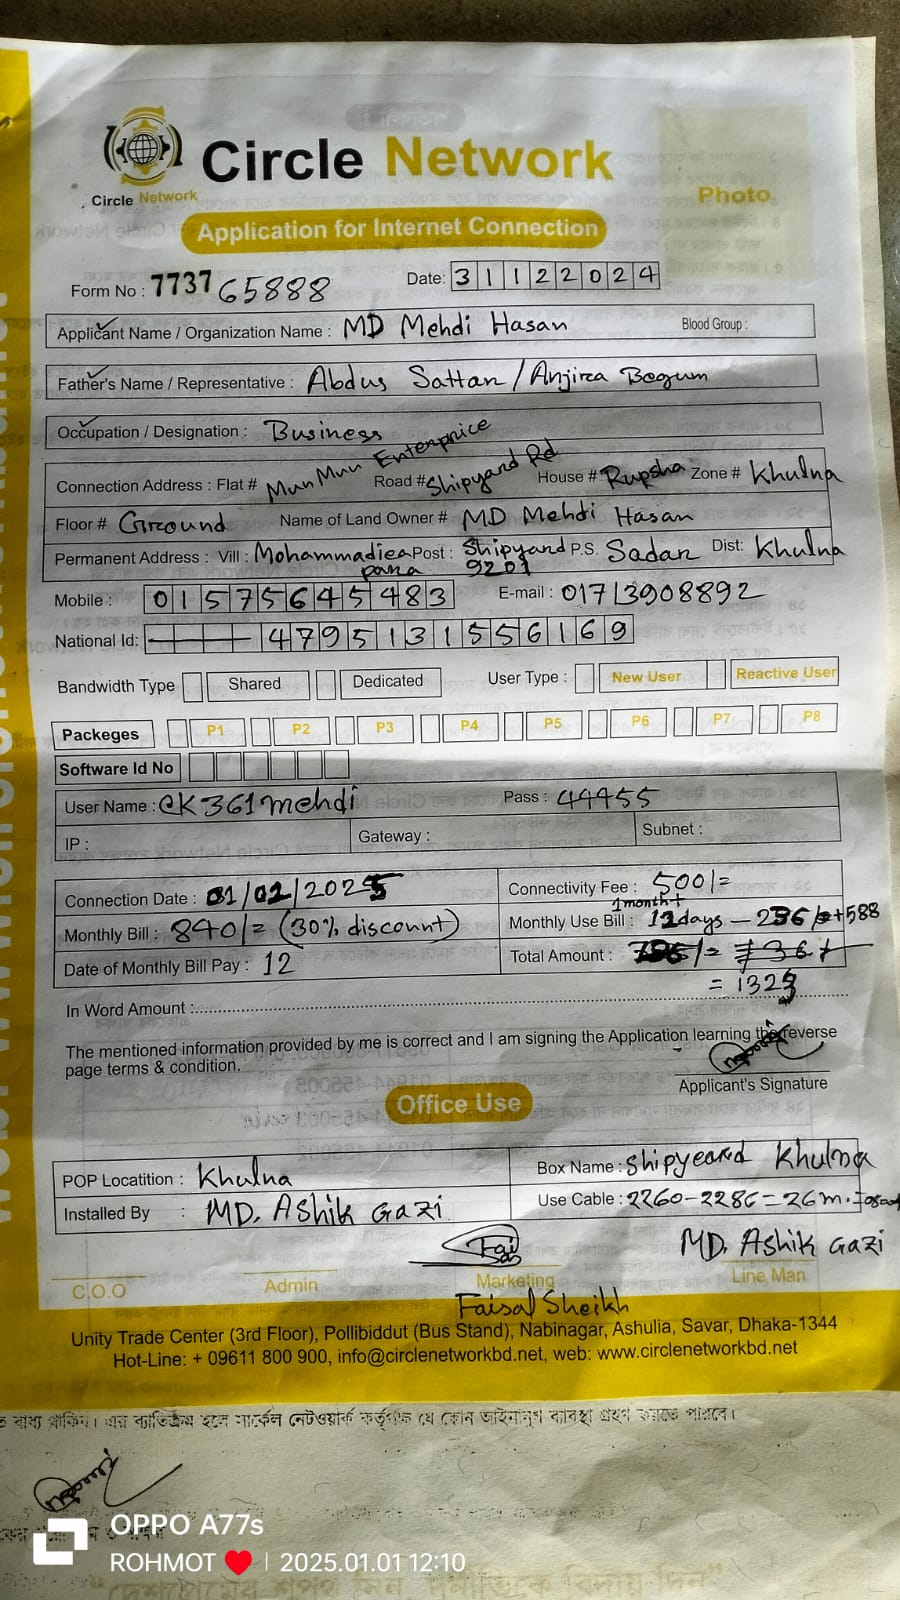 Circle Network
Circle Network
Photo
Application for Internet Connection
Form No : 7737 65888 Date: 31122024
Applicant Name / Organization Name : MD Mehdi Hasan Blood Group :
Father's Name / Representative : Abdus Sattar / Anjira Begum
Occupation / Designation : Business
Connection Address : Flat # Mun Mun Enterprice Road # Shipyard Rd House # Rupsha Zone # Khulna
Floor # Ground Name of Land Owner # MD Mehdi Hasan
Permanent Address : Vill : Mohammadiea para Post : Shipyard 9201 P.S. Sadar Dist: Khulna
Mobile : 01575645483 E-mail : 01713908892
National Id: 4795131556169
Bandwidth Type Shared Dedicated User Type : New User Reactive User
Packeges P1 P2 P3 P4 P5 P6 P7 P8
Software Id No
User Name : CK361mehdi Pass : 44455
IP : Gateway : Subnet :
Connection Date : 01/02/2025 Connectivity Fee : 500/=
Monthly Bill : 840/= (30% discount) Monthly Use Bill : 1month+ 12days – 236/=+588
Date of Monthly Bill Pay : 12 Total Amount :
= 1323
In Word Amount :
The mentioned information provided by me is correct and I am signing the Application learning the reverse
page terms & condition.
Applicant's Signature
Office Use
POP Locatition : Khulna Box Name : Shipyeard Khulna
Installed By : MD. Ashik Gazi Use Cable : 2260-2286=26m.
MD. Ashik Gazi
C.O.O Admin Marketing Line Man
Faisal Sheikh
Unity Trade Center (3rd Floor), Pollibiddut (Bus Stand), Nabinagar, Ashulia, Savar, Dhaka-1344
Hot-Line: + 09611 800 900, info@circlenetworkbd.net, web: www.circlenetworkbd.net
বাধ্য থাকিব। এর ব্যতিক্রম হলে সার্কেল নেটওয়ার্ক কর্তৃপক্ষ যে কোন আইনানুগ ব্যবস্থা গ্রহণ করতে পারবে।
OPPO A77s
ROHMOT ❤️ | 2025.01.01 12:10